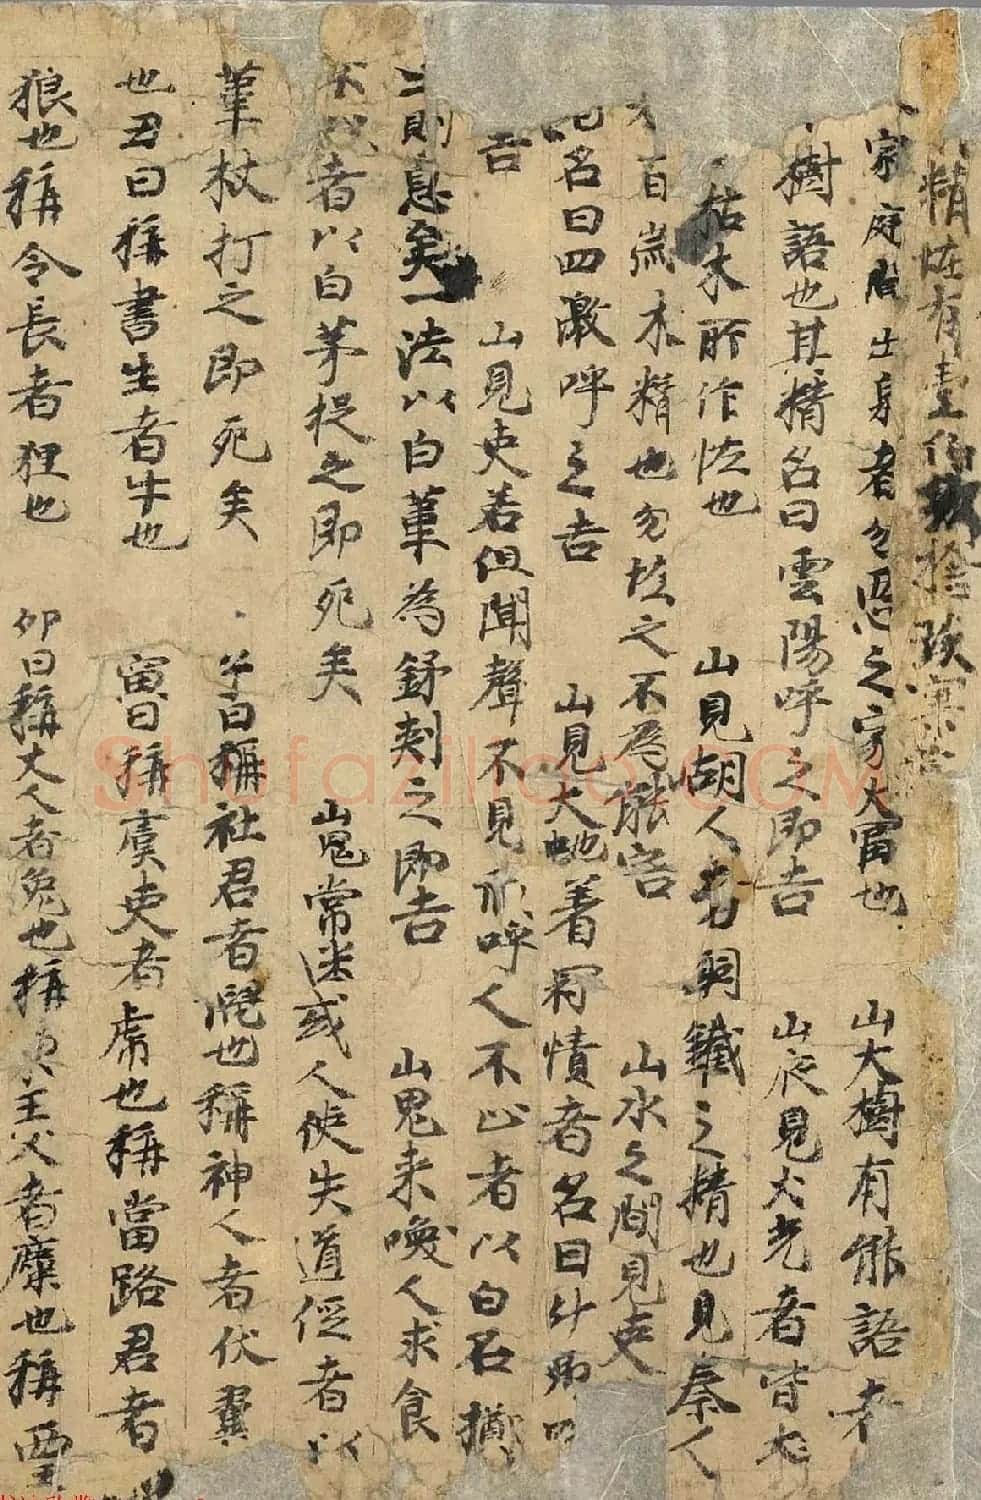 精怪有壹伯
家庭 出身者勿惡之家大富也 山大樹有能語者
樹語也其精名曰雲陽呼之即吉 山夜見火光者皆大
枯木所作怪也 山見胡人者銅鐵之精也見秦人
百歲木精也勿怪之不爲能害 山水之間見吏
名曰四激呼之吉 山見大虵著冠幘者名曰升卿
吉 山見吏若但聞聲不見形呼人不止者以白石擲
則息矣一法以白葦為鉾刾之即吉 山鬼来喚人求食
者以白茅投之即死矣 山鬼常迷或人使失道俓者以
葦杖打之即死矣 子日稱社君者鼠也稱神人者伏翼
也丑日稱書生者牛也 寅日稱虞吏者虎也稱當路君者
狼也稱令長者狸也 卯日稱丈人者兔也稱東王父者麋也稱西王
shufaziliao.com